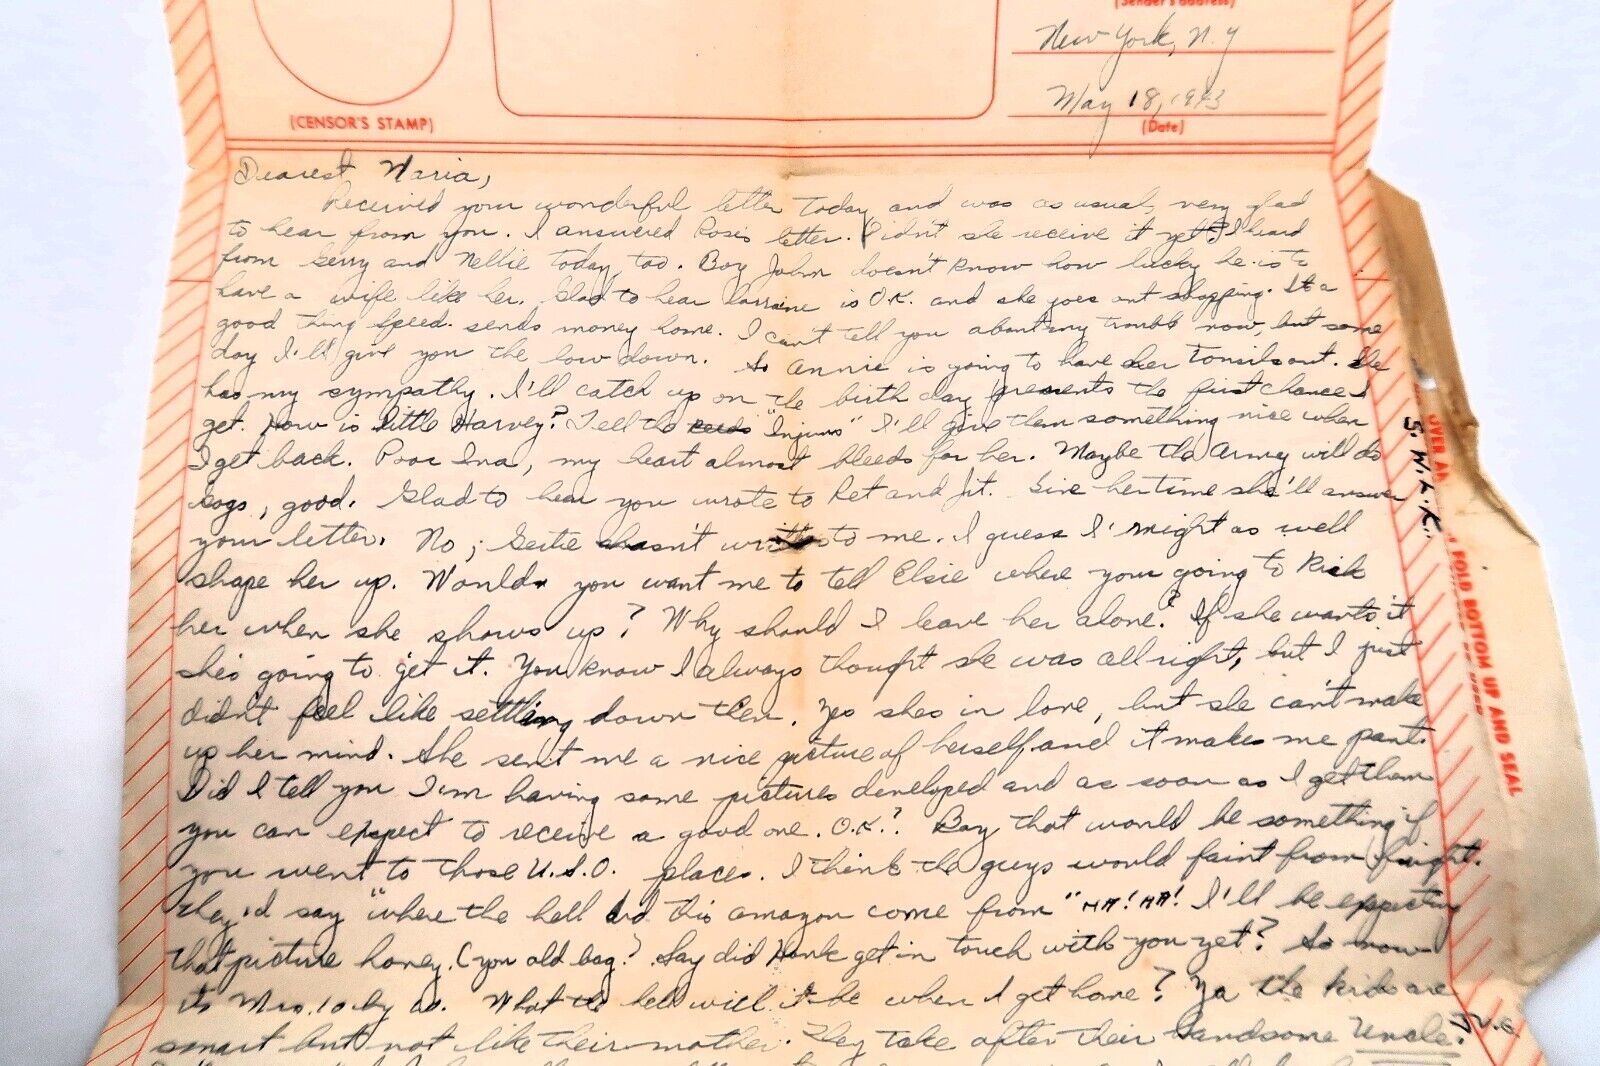 (Sender's address)
New York, N.Y
May 18, 1943
(CENSOR'S STAMP)
(Date)
Dearest Maria,
Received your wonderful letter today and was as usual, very glad
to hear from you. I answered Rose's letter. Didn't she receive it yet? I heard
from Gerry and Nellie today, too. Boy John doesn't know how lucky he is to
have a wife like her. Glad to hear Lorraine is O.K. and she goes out shopping. It a
good thing Speed sends money home. I can't tell you about my trouble now, but some
day I'll give you the low down. So Annie is going to have her tonsils out. She
has my sympathy. I'll catch up on the birth day presents the first chance I
get. How is little Harvey? Tell the "Injuns" I'll give them something nice when
I get back. Poor Ina, my heart almost bleeds for her. Maybe the Army will do
good. Glad to hear you wrote to Ret and Jit. Give her time she'll answer
your letter. No, Gertie hasn't to me. I guess I might as well
shape her up. Would you want me to tell Elsie where your going to Kick
her when she shows up? Why should I leave her alone? If she wants it
she's going to get it. You know I always thought she was all right, but I just
didn't feel like settling down then. Yes shes in love, but she can't make
up her mind. She sent me a nice picture of herself and it makes me pant.
Did I tell you I am having some pictures developed and as soon as I get them
you can expect to receive a good one. O.K.? Boy that would be something if
you went to those U.S.O. places. I think the guys would faint from fright.
They'd say "where the hell did this amazon come from" HA! HA! I'll be expecting
that picture honey. (you old bag? Say did Hank get in touch with you yet? So now
its Mrs. What the hell will it be when I get home? Ya the kids are
smart but not like their mother. They take after their handsome Uncle.
S.W.A.K.
OVER AN
FOLD BOTTOM UP AND SEAL